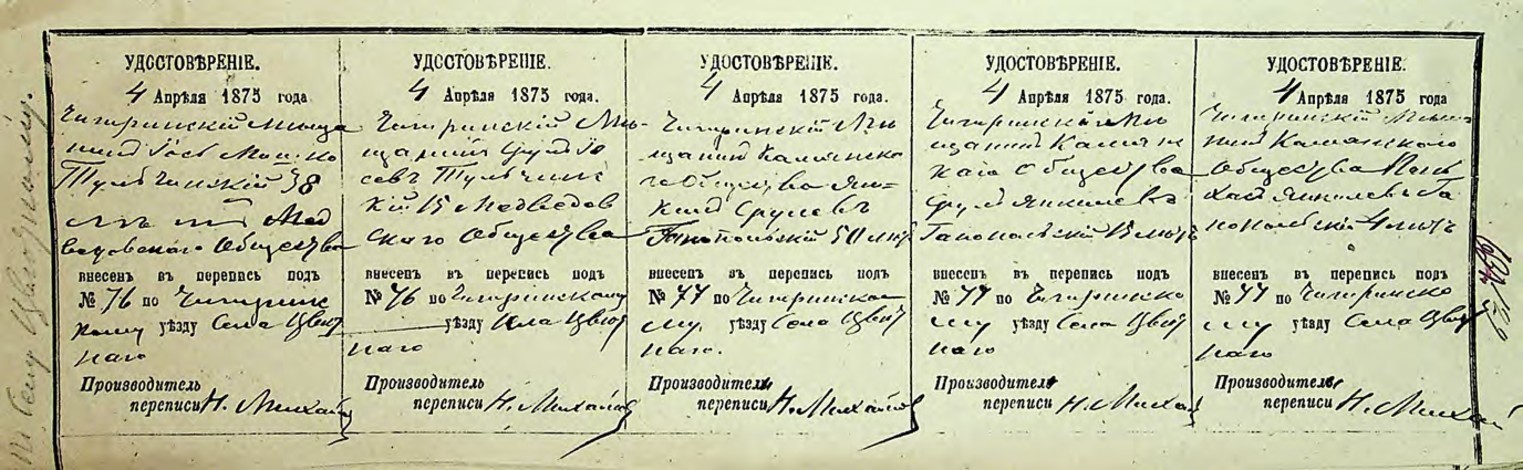 УДОСТОВѢРЕНІЕ.
4 Апрѣля 1875 года
Чигиринскій мѣща
нинъ Іось
Тульчинскій 38
лѣтъ Мед
ведовскаго Общества
внесенъ въ перепись подъ
№ 76 по Чигирин
скому уѣзду Села Цвѣт
наго
Производитель
переписи Н. Михай
УДОСТОВѢРЕНІЕ.
4 Апрѣля 1875 года.
Чигиринскій Мѣ-
щанинъ Сруль Іо
севъ Тульчинс
кій 15 Медведов
скаго Общества
внесенъ въ перепись подъ
№ 76 по Чигиринскому
уѣзду Села Цвѣт
наго
Производитель
переписи Н. Михайлов
УДОСТОВѢРЕНІЕ.
4 Апрѣля 1875 года.
Чигиринскій Мѣ
щанинъ Каменско
го Общества Ян=
кель Срулевъ
Гайопольскій 50 лѣтъ
внесенъ въ перепись подъ
№ 77 по Чигиринско
му уѣзду Села Цвѣт
наго.
Производитель
переписи Н. Михайлов
УДОСТОВѢРЕНІЕ.
4 Апрѣля 1875 года.
Чигиринскій Мѣ
щанинъ Каменс
каго Общества
Сруль Янкелевъ
15 лѣтъ
внесенъ въ перепись подъ
№ 77 по Чигиринско
му уѣзду Села Цвѣт
наго
Производитель
переписи Н. Михай
УДОСТОВѢРЕНІЕ.
4 Апрѣля 1875 года
Чигиринскій Мѣща-
нинъ Каменскаго
Общества
Янкелевъ Га
4 лѣтъ
внесенъ въ перепись подъ
№ 77 по Чигиринско
му уѣзду Села Цвѣт
наго
Производитель
переписи Н. Михай